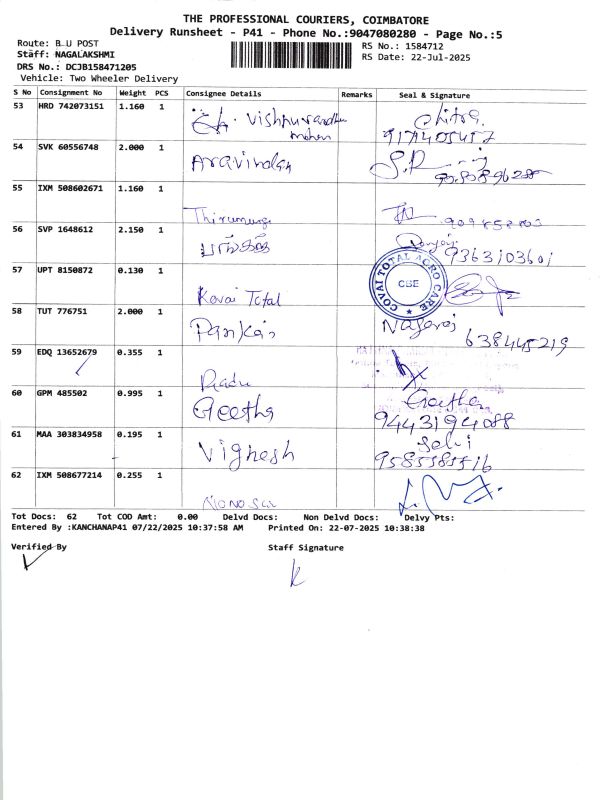 THE PROFESSIONAL COURIERS, COIMBATORE
Delivery Runsheet - P41 - Phone No.:9047080280 - Page No.:5
Route: B U POST
RS No.: 1584712
Staff: NAGALAKSHMI
RS Date: 22-Jul-2025
DRS No.: DCJB158471205
Vehicle: Two Wheeler Delivery
S No Consignment No Weight PCS Consignee Details Remarks Seal & Signature
53 HRD 742073151 1.160 1
54 SVK 60556748 2.000 1 Aravindan
55 IXM 508602671 1.160 1
56 SVP 1648612 2.150 1
9363103601
57 UPT 8150872 0.130 1 Kovai Total
COVAI TOTAL AGRO CARE
CBE
58 TUT 776751 2.000 1 Nagaraj
638445219
59 EDQ 13652679 0.355 1
60 GPM 485502 0.995 1 Geetha Geetha
9443194088
61 MAA 303834958 0.195 1 Vignesh Selvi
9585585516
62 IXM 508677214 0.255 1
Tot Docs: 62 Tot COD Amt: 0.00 Delvd Docs: Non Delvd Docs: Delvy Pts:
Entered By :KANCHANAP41 07/22/2025 10:37:58 AM Printed On: 22-07-2025 10:38:38
Verified By Staff Signature